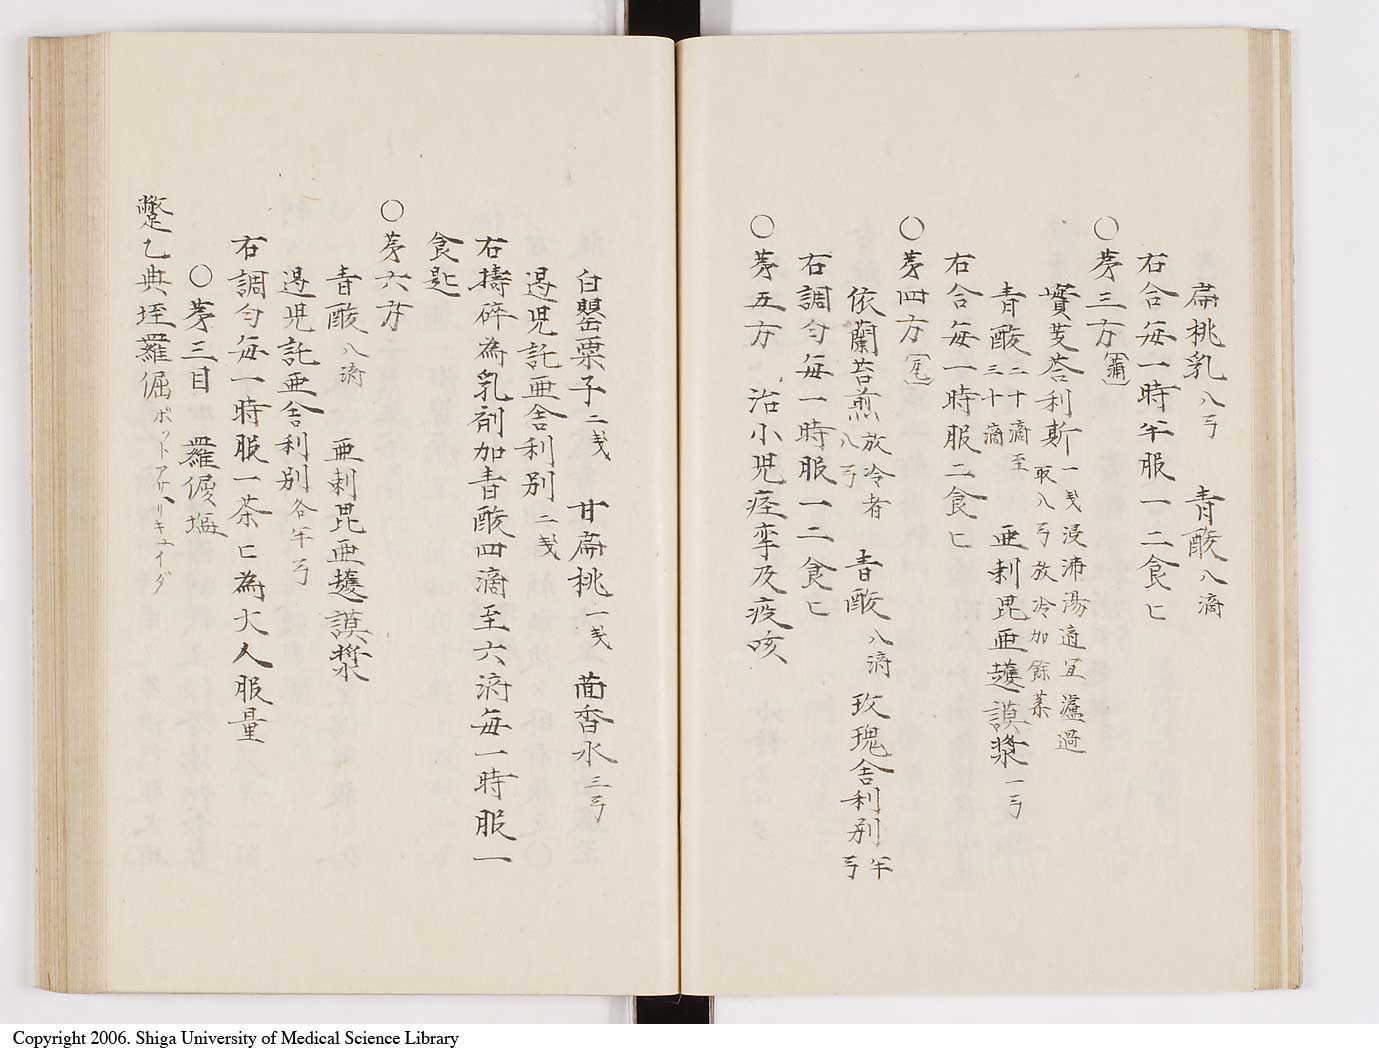 扁桃乳八弓 青酸八滴
右合毎一時半服一二食匕
○第三方(蒲)
實芰荅利斯一戔浸沸湯適宜瀘過取八弓放冷加餘薬
青酸二十滴至三十滴 亜剌毘亜護謨漿一弓
右合毎一時服二食匕
○第四方
依蘭苔煎放冷者八弓 青酸八滴 玫瑰舎利別半弓
右調匀毎一時服一二食匕
○第五方 治小児痙攣及疫咳
白罌粟子二戔 甘扁桃一戔 茴香水三弓
過児託亜舎利別二戔
右擣碎為乳剤加青酸四滴至六滴毎一時服一
食匙
○第六方
青酸八滴 亜剌毘亜護謨漿
過児託亜舎利別各半弓
右調匀毎一時服一茶匕為大人服量
○第三目 羅倔塩
蹩乙典垤羅倔